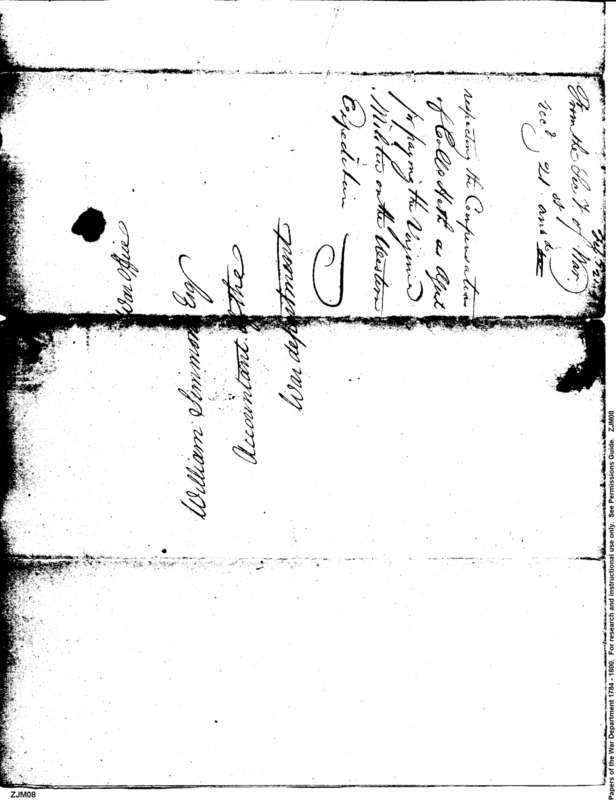 From the Sec.y of War
rec.d 21
respecting the Compensation
of Coll. Heth as Agent
for paying the Virginia
Militia on the Western
Expedition
War Office
William Simmons Esq
Accountant of the
War department
Papers of the War Department 1784 - 1800. For research and instructional use only. See Permissions Guide. ZJM08
ZJM08